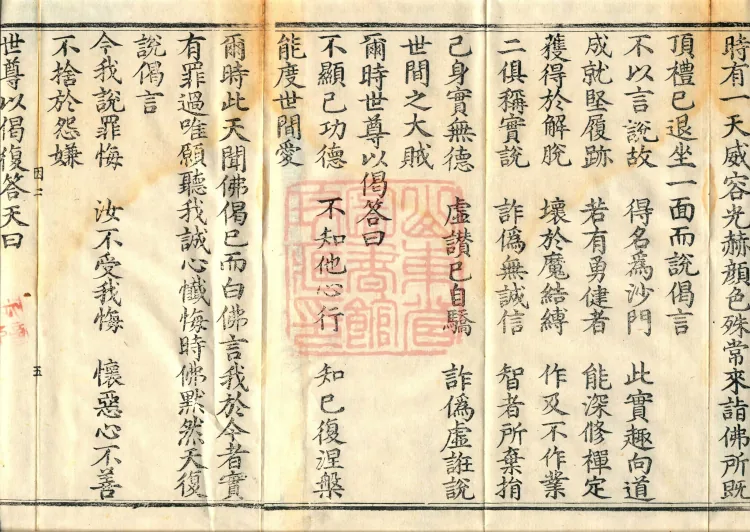 時有一天威容光赫顏色殊常來詣佛所既
頂禮已退坐一面而說偈言
不以言說故　得名為沙門　此實趣向道
成就堅履跡　若有勇健者　能深修禪定
獲得於解脫　壞於魔結縛　作及不作業
二俱稱實說　詐偽無誠信　智者所棄捐
己身實無德　虛讚已自驕　詐偽虛誑說
世間之大賊
爾時世尊以偈答曰
不顯己功德　不知他心行　知已復涅槃
能度世間愛
爾時此天聞佛偈已而白佛言我於今者實
有罪過唯願聽我誠心懺悔時佛默然天復
說偈言
今我說罪悔　汝不受我悔　懷惡心不善
不捨於怨嫌
世尊以偈復答天曰
五
山東省
圖書館